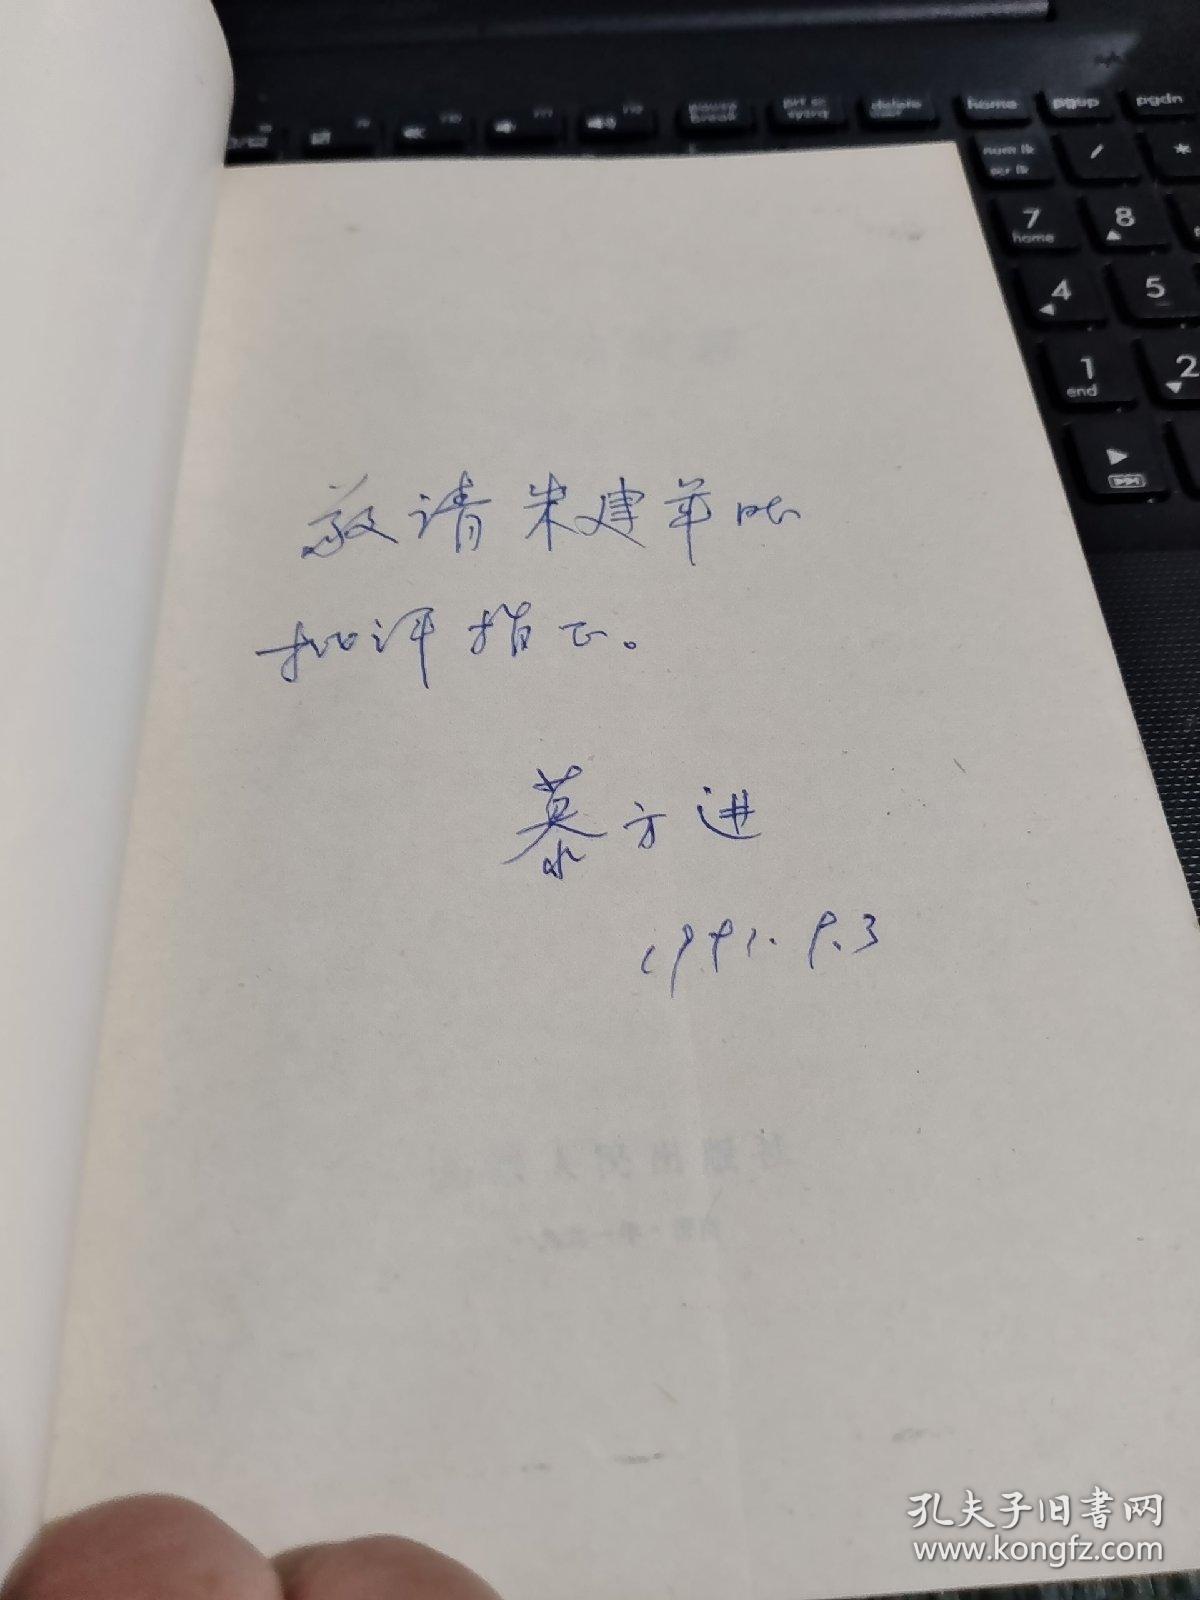 敬请朱建华
批评指正。
慕方进
1991.9.3
pause
break
prt sc
sysrq
delete
home
pgup
pgdn
num lk
scr lk
/
*
7
home
8
4
5
1
end
2
孔夫子旧书网
www.kongfz.com